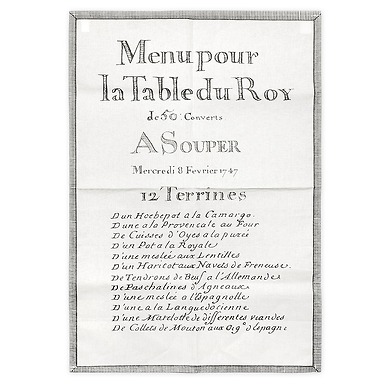 Menu pour
la Table du Roy
de 50 Converts
A Souper
Mercredi 8 Fevrier 1747
12 Terrines
D'un Hochepot à la Camargo.
D'une a la Provencale au Four
De Cuisses d'Oyes a la purée
D'un Pot a la Royale
D'une meslée aux Lentilles
D'un Haricot aux Navets de Freneuse.
De Tendrons de Beuf a l'Allemande
De Paschalines d'Agneaux
D'une meslee a l'Espagnolle
D'une a la Languedocienne
D'une Matelotte de differentes viandes
De Collets de Mouton aux Oig.ⁿ d'Espagne